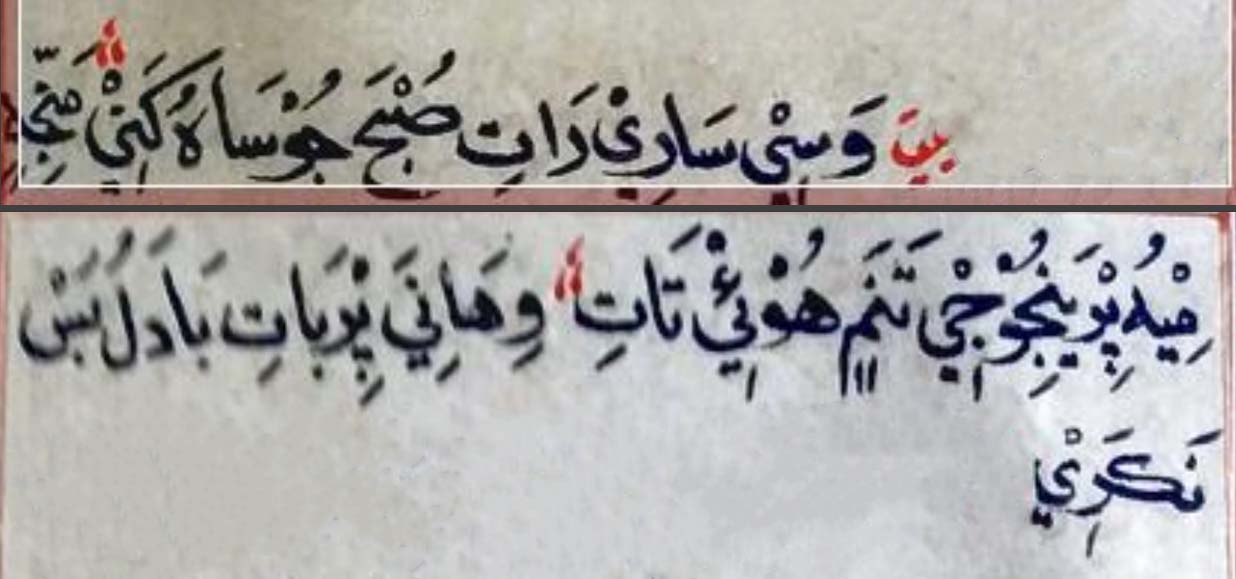 بيتَ وَسِيْ سَارِيْ رَاتِ صُبْحَ جُوْ سَاهُ کَنِيْ مَنِجِّ
مِيْهُ پِرْيَنِجُوْ جِيْ تَنَمِ هُوْئِيْ تَاتِ وِهَانِيَ پِرْبَاتِ بَادَلُ بَسْ
نَکَرِيْ